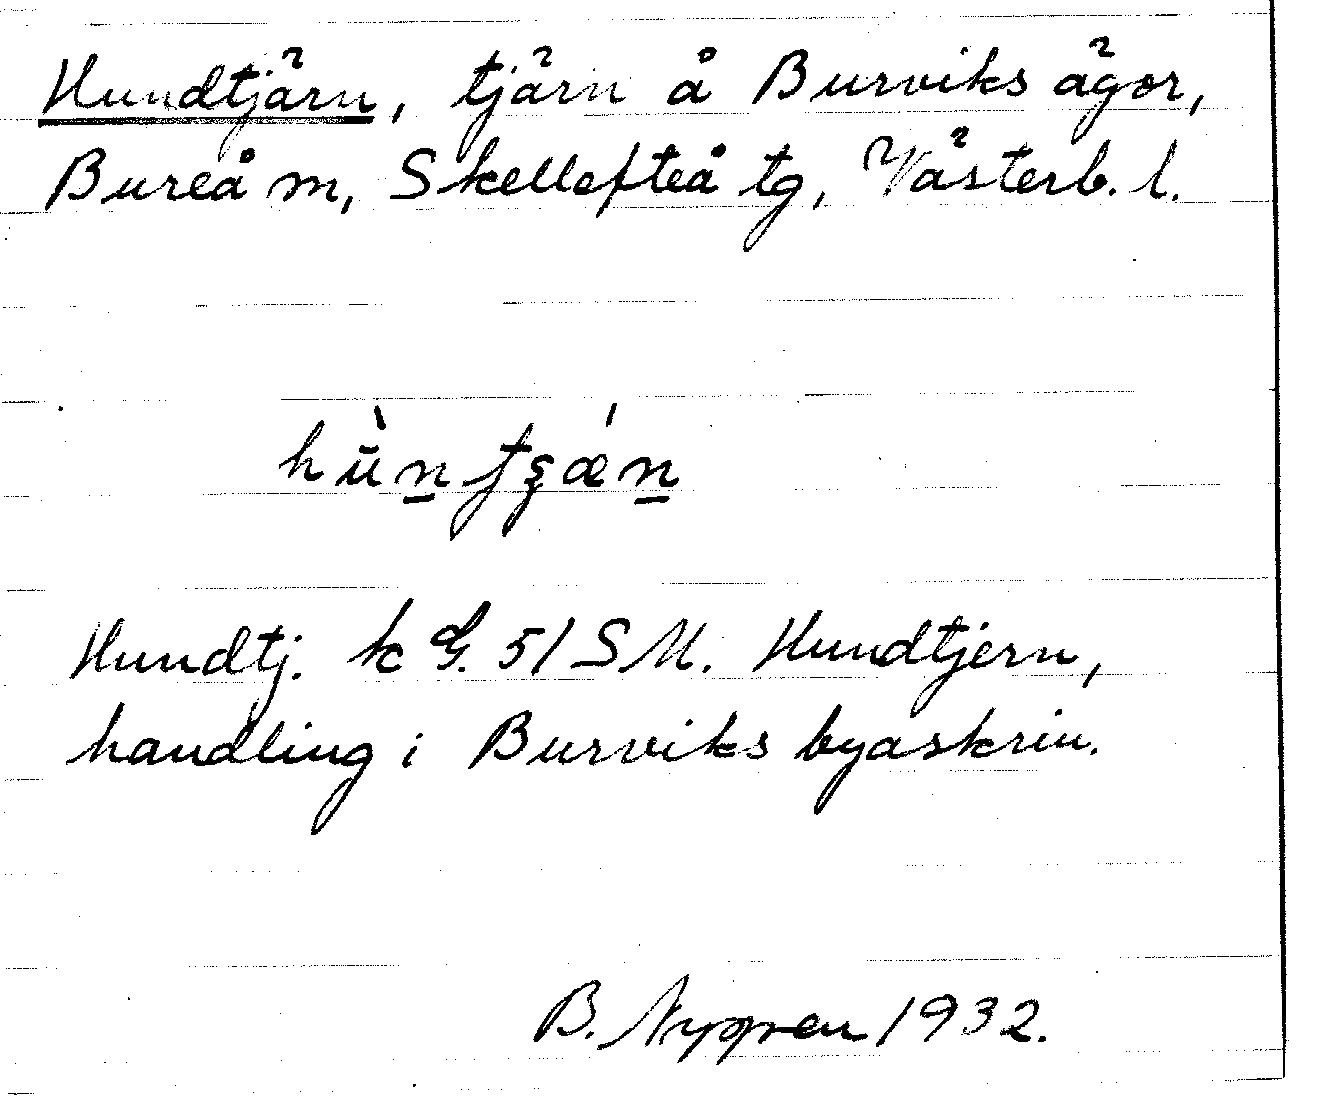 Hundtjärn, tjärn å Burviks ägor,
Bureå m, Skellefteå tg, Västerb. l.
Hundtj. k G. 51 SM. Hundtjern,
handling i Burviks byaskrin.
B. Nygren 1932.